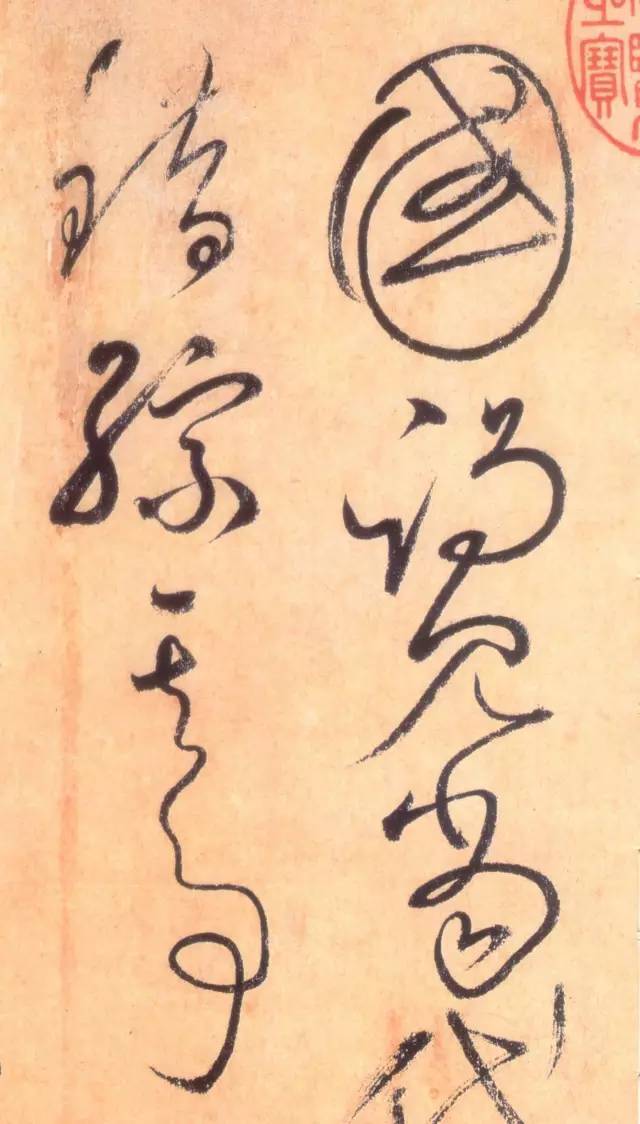 國謁見當代
錯綜其事
寶